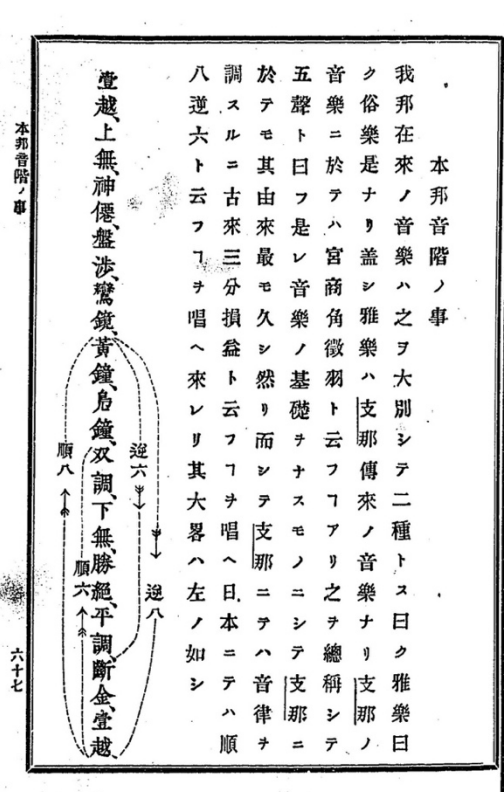 本邦音階ノ事
我邦在來ノ音樂ハ之ヲ大別シテ二種トス曰ク雅樂曰
ク俗樂是ナリ蓋シ雅樂ハ支那傳來ノ音樂ナリ支那ノ
音樂ニ於テハ宮商角徵羽ト云フヿアリ之ヲ總稱シテ
五聲ト曰フ是レ音樂ノ基礎ヲナスモノニシテ支那ニ
於テモ其由來最モ久シ然リ而シテ支那ニテハ音律ヲ
調スルニ古來三分損益ト云フヿヲ唱ヘ日本ニテハ順
八逆六ト云フヿヲ唱ヘ來レリ其大畧ハ左ノ如シ
逆八
逆六
壹越、上無、神僊、盤渉、鸞鏡、黃鐘、鳧鐘、双調、下無、勝絕、平調、斷金、壹越、
順六
順八
本邦音階ノ事
六十七